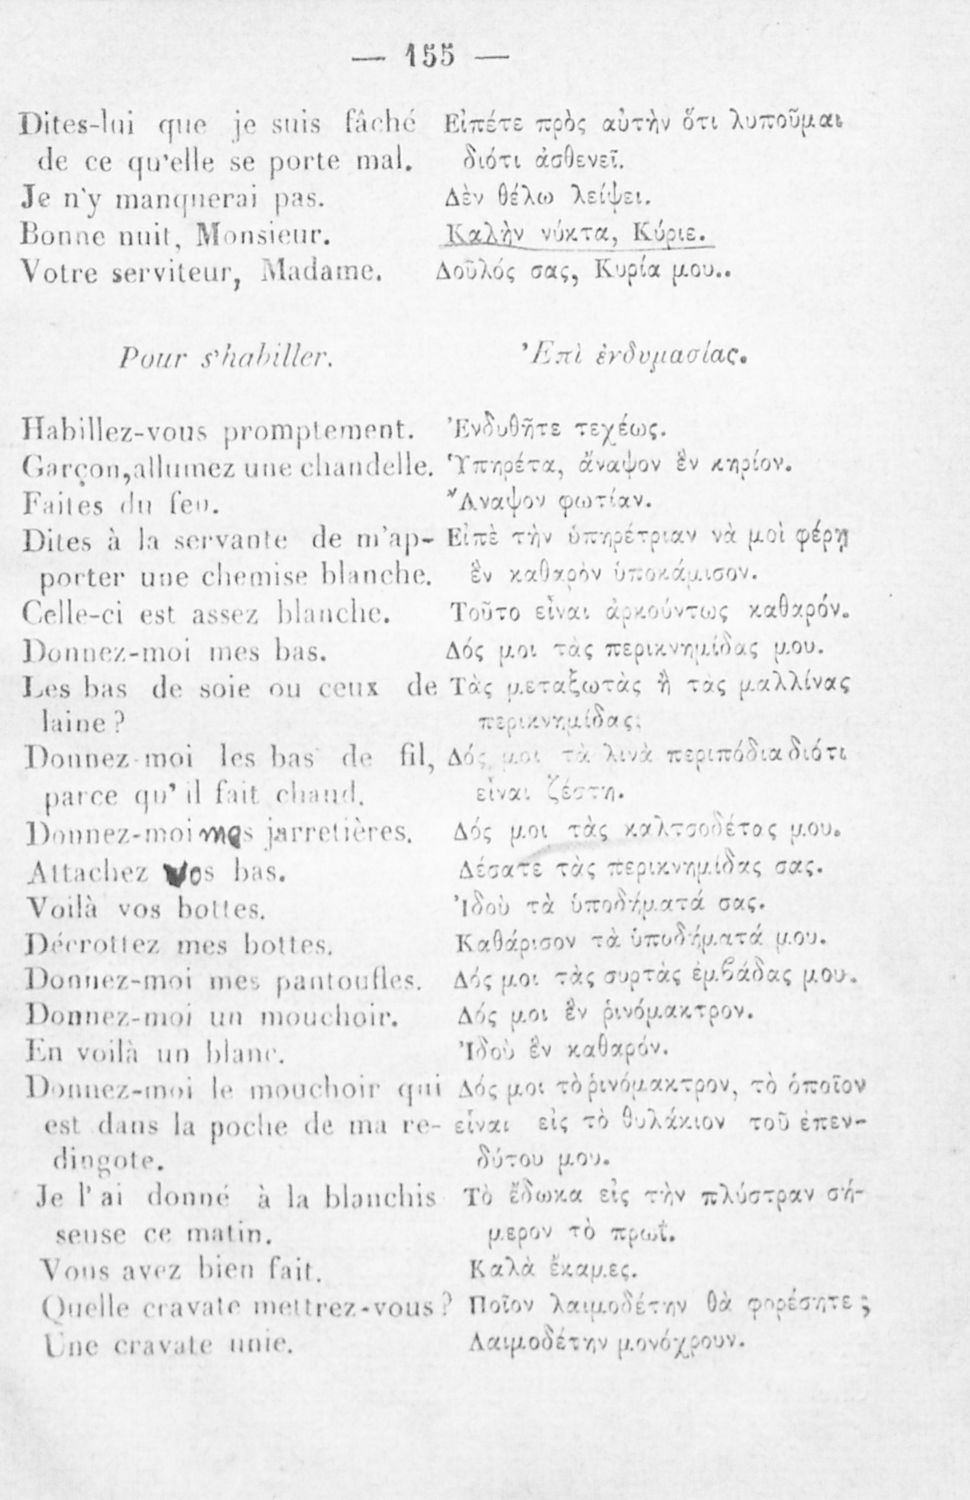 — 155 —
Dites-lui que je suis fâché
de ce qu'elle se porte mal.
Je n'y manquerai pas.
Bonne nuit, Monsieur.
Votre serviteur, Madame.
Εἰπέτε πρὸς αὐτὴν ὅτι λυποῦμαι
διότι ἀσθενεῖ.
Δὲν θέλω λείψει.
Καλὴν νύκτα, Κύριε.
Δοῦλός σας, Κυρία μου..
Pour s'habiller.
Ἐπὶ ἐνδυμασίας.
Habillez-vous promptement.
Garçon,allumez une chandelle.
Faites du feu.
Dites à la servante de m'ap-
porter une chemise blanche.
Celle-ci est assez blanche.
Donnez-moi mes bas.
Les bas de soie ou ceux de
laine ?
Donnez-moi les bas de fil,
parce qu' il fait chaud.
Donnez-moi mes jarretières.
Attachez vos bas.
Voilà vos bottes.
Décrottez mes bottes.
Donnez-moi mes pantoufles.
Donnez-moi un mouchoir.
En voilà un blanc.
Donnez-moi le mouchoir qui
est dans la poche de ma re-
dingote.
Je l' ai donné à la blanchis
seuse ce matin.
Vous avez bien fait.
Quelle cravate mettrez-vous ?
Une cravate unie.
Ἐνδυθῆτε τεχέως.
Ὑπηρέτα, ἄναψον ἓν κηρίον.
Ἄναψον φωτίαν.
Εἰπὲ τὴν ὑπηρέτριαν νὰ μοὶ φέρῃ
ἓν καθαρὸν ὑποκάμισον.
Τοῦτο εἶναι ἀρκούντως καθαρόν.
Δός μοι τὰς περικνημίδας μου.
Τὰς μεταξωτὰς ἢ τὰς μαλλίνας
περικνημίδας;
Δός μοι τὰ λινὰ περιπόδια διότι
εἶναι ζέστη.
Δός μοι τὰς καλτσοδέτας μου.
Δέσατε τὰς περικνημίδας σας.
Ἰδοὺ τὰ ὑποδήματά σας.
Καθάρισον τὰ ὑποδήματά μου.
Δός μοι τὰς συρτὰς ἐμβάδας μου.
Δός μοι ἓν ῥινόμακτρον.
Ἰδοὺ ἓν καθαρόν.
Δός μοι τὸ ῥινόμακτρον, τὸ ὁποῖον
εἶναι εἰς τὸ θυλάκιον τοῦ ἐπεν-
δύτου μου.
Τὸ ἔδωκα εἰς τὴν πλύστραν σή-
μερον τὸ πρωΐ.
Καλὰ ἔκαμες.
Ποῖον λαιμοδέτην θὰ φορέσητε ;
Λαιμοδέτην μονόχρουν.